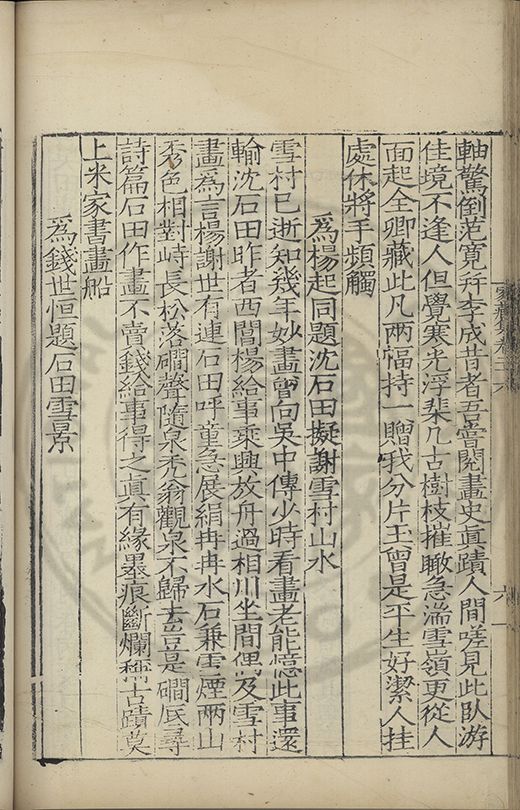 家藏集卷二六
六一
軸驚倒范寬并李成昔者吾嘗閱畫史真蹟人間嗟見此臥游
佳境不逢人但覺寒光浮棐几古樹枝摧瞰急湍雪嶺更從人
面起全卿藏此凡兩幅持一贈我分片玉曾是平生好潔人挂
處休將手頻觸
爲楊起同題沈石田擬謝雪村山水
雪村已逝知幾年妙畫曾向吳中傳少時看畫老能憶此事還
輸沈石田昨者西閶楊給事乘興放舟過相川坐間偶及雪村
畫爲言楊謝世有連石田呼童急展絹冉冉水石兼雲煙兩山
秀色相對峙長松落磵聲隨泉秀翁觀泉不歸去豈是磵底尋
詩篇石田作畫不賣錢給事得之真有緣墨痕斷爛稱古蹟莫
上米家書畫船
爲錢世恒題石田雪景